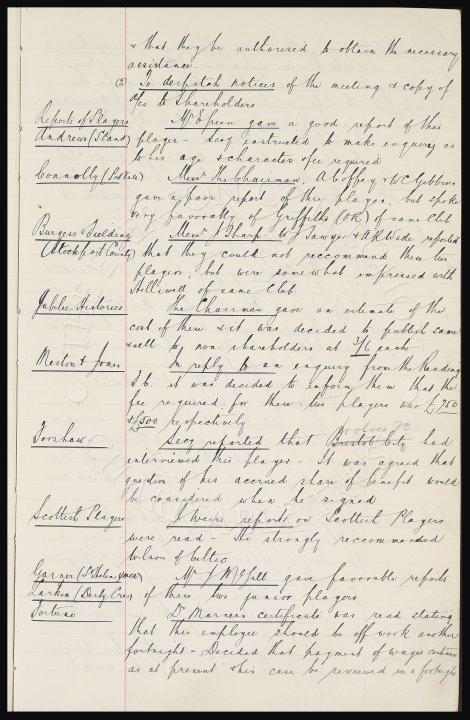 & that they be authorised to obtain the necessary
assistance.
(2) To despatch notices of the meeting & copy of
a/cs to Shareholders
Reports of Players Mr Green gave a good report of this
Andrews (S'land) player - Secy instructed to make enquiry as
to his age & character & fee required
Connolly (Port Vale) Messrs The Chairman, A Coffey & WC Gibbins
gave a poor report of this player, but spoke
very favorably of Griffiths (OR) of same club
Burgess & Fielding Messrs J Sharp W J Sawyer & AR Wade reported
(Stockport County) that they could not reccommend these two
players but were somewhat impressed with
Halliwell of same Club
Jubilee Histories The Chairman gave an estimate of the
cost of these & it was decided to publish same
& sell to non shareholders at 3/6 each
Meston & Jones In reply to an enquiry from the Reading
F.C. it was decided to inform them that the
fee required for these two players was £750
& £500 respectively
Forshaw Secy reported that Bristol City Wolves FC had
interviewed this player - It was agreed that
question of his accrued share of benefit would
be considered when he signed
Scottish Players J Weirs reports on Scottish Players
were read - He strongly reccommended
Wilson of Celtic
Garner (St Helens YMCA) Mr J McGill gave favorable reports
Larkin (Derby Cross) of these two junior players
Fortune Dr Marners certificate was read stating
that this employee should be off work another
fortnight - Decided that payment of wages continue
as at present & his case be reviewed in a fortnight